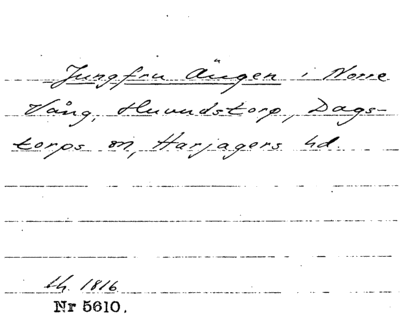 Jungfru Ängen i Norre
Vång, Huvudstorp, Dags-
torps sn, Harjagers hd.
th. 1816
Nr 5610.